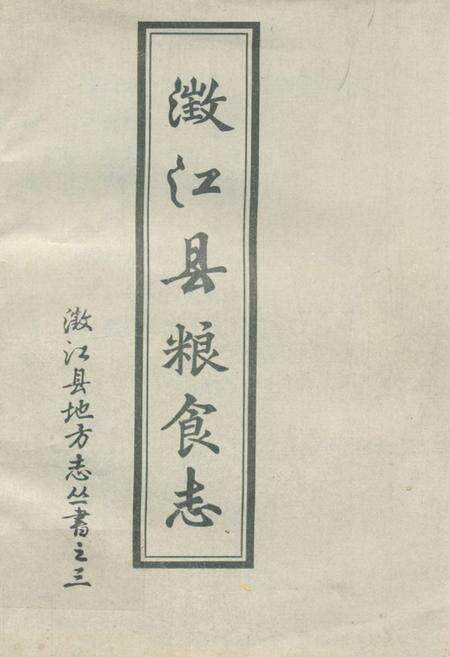 澂江县粮食志
澂江县地方志丛书之三